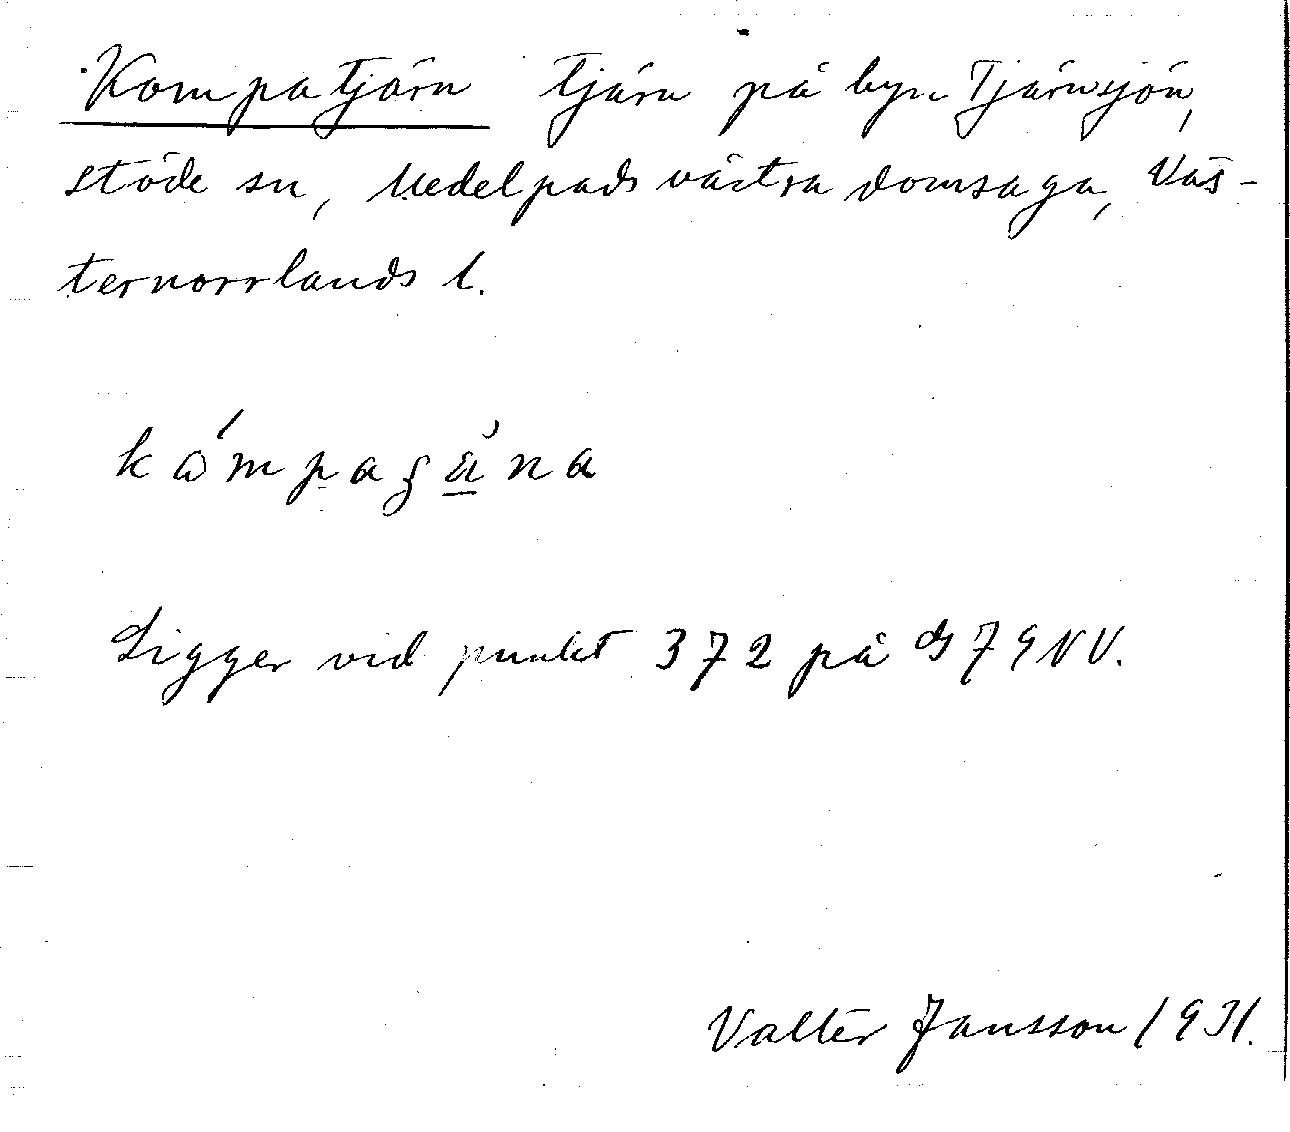 Kompatjärn tjärn på byn Tjärnsjön,
Stöde sn, Medelpads västra domsaga, Väs-
ternorrlands l.
Ligger vid punkt 372 på gs 79 NV.
Valter Jansson 1931.